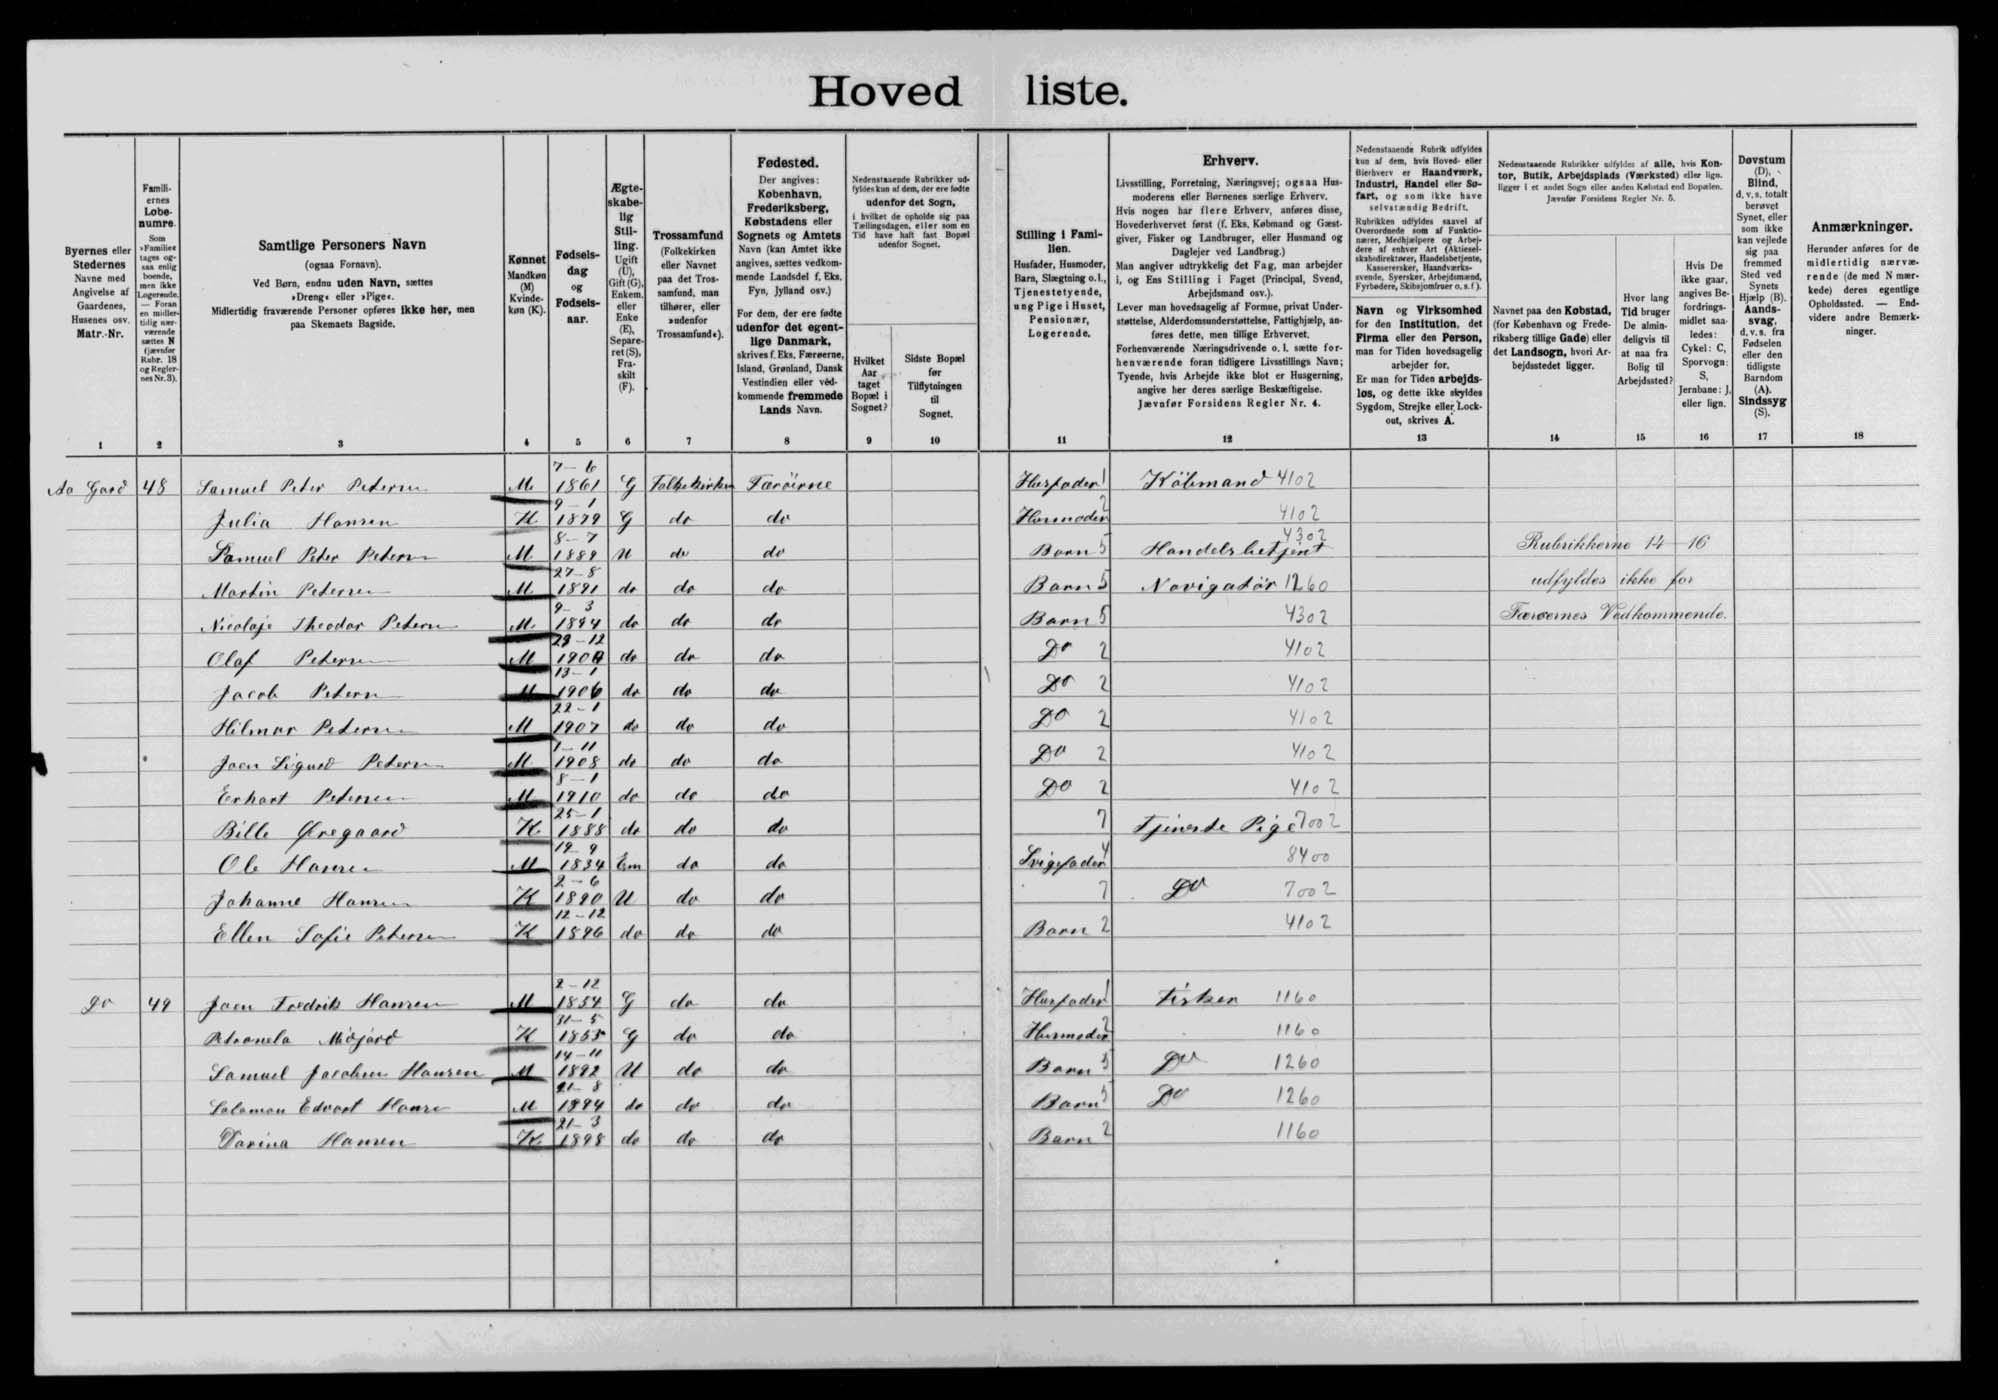 Hovedliste.
Byernes eller Stedernes Navne med Angivelse af Gaardenes, Husenes osv. Matr.-Nr.
Famili-ernes Løbe-numre.
Som »Familie« tages og-saa enlig boende, men ikke Logerende. — Foran en midler-tidig nær-værende sættes N (jævnfør Rubr. 18 og Regler-nes Nr. 3).
Samtlige Personers Navn
(ogsaa Fornavn).
Ved Børn, endnu uden Navn, sættes »Dreng« eller »Pige«.
Midlertidig fraværende Personer opføres ikke her, men paa Skemaets Bagside.
Kønnet
Mandkøn (M) Kvinde-køn (K).
Fødsels-dag og Fødsels-aar.
Ægte-skabe-lig Stil-ling.
Ugift (U), Gift (G), Enkem. eller Enke (E), Separe-ret (S), Fra-skilt (F).
Trossamfund
(Folkekirken eller Navnet paa det Tros-samfund, man tilhører, eller »udenfor Trossamfund«).
Fødested.
Der angives: København, Frederiksberg, Købstadens eller Sognets og Amtets Navn (kan Amtet ikke angives, sættes vedkom-mende Landsdel f. Eks. Fyn, Jylland osv.)
For dem, der ere fødte udenfor det egent-lige Danmark, skrives f. Eks. Færøerne, Island, Grønland, Dansk Vestindien eller ved-kommende fremmede Lands Navn.
Nedenstaaende Rubrikker ud-fyldes kun af dem, der ere fødte udenfor det Sogn, i hvilket de opholde sig paa Tællingsdagen, eller som en Tid have haft fast Bopæl udenfor Sognet.
Hvilket Aar taget Bopæl i Sognet?
Sidste Bopæl før Tilflytningen til Sognet.
Stilling i Fami-lien.
Husfader, Husmoder, Barn, Slægtning o. l., Tjenestetyende, ung Pige i Huset, Pensionær, Logerende.
Erhverv.
Livsstilling, Forretning, Næringsvej; ogsaa Hus-moderens eller Børnenes særlige Erhverv.
Hvis nogen har flere Erhverv, anføres disse, Hovederhvervet først (f. Eks. Købmand og Gæst-giver, Fisker og Landbruger, eller Husmand og Daglejer ved Landbrug.)
Man angiver udtrykkelig det Fag, man arbejder i, og Ens Stilling i Faget (Principal, Svend, Arbejdsmand osv.).
Lever man hovedsagelig af Formue, privat Under-støttelse, Alderdomsunderstøttelse, Fattighjælp, an-føres dette, men tillige Erhvervet.
Forhenværende Næringsdrivende o. l. sætte for-henværende foran tidligere Livsstillings Navn; Tyende, hvis Arbejde ikke blot er Husgerning, angive her deres særlige Beskæftigelse.
Jævnfør Forsidens Regler Nr. 4.
Nedenstaaende Rubrik udfyldes kun af dem, hvis Hoved- eller Bierhverv er Haandværk, Industri, Handel eller Sø-fart, og som ikke have selvstændig Bedrift.
Rubrikken udfyldes saavel af Overordnede som af Funktio-nærer, Medhjælpere og Arbej-dere af enhver Art (Aktiesel-skabsdirektører, Handelsbetjente, Kasserersker, Haandværks-svende, Syersker, Arbejdsmænd, Fyrbødere, Skibsjomfruer o. s. f.).
Navn og Virksomhed for den Institution, det Firma eller den Person, man for Tiden hovedsagelig arbejder for.
Er man for Tiden arbejds-løs, og dette ikke skyldes Sygdom, Strejke eller Lock-out, skrives A.
Nedenstaaende Rubrikker udfyldes af alle, hvis Kon-tor, Butik, Arbejdsplads (Værksted) eller lign. ligger i et andet Sogn eller anden Købstad end Bopælen.
Jævnfør Forsidens Regler Nr. 5.
Navnet paa den Købstad, (for København og Frede-riksberg tillige Gade) eller det Landsogn, hvori Ar-bejdsstedet ligger.
Hvor lang Tid bruger De almin-deligvis til at naa fra Bolig til Arbejdssted?
Hvis De ikke gaar, angives Be-fordrings-midlet saa-ledes: Cykel: C, Sporvogn: S, Jernbane: J, eller lign.
Døvstum (D), Blind, d. v. s. totalt berøvet Synet, eller som ikke kan vejlede sig paa fremmed Sted ved Synets Hjælp (B). Aands-svag, d. v. s. fra Fødselen eller den tidligste Barndom (A). Sindssyg (S).
Anmærkninger.
Herunder anføres for de midlertidig nærvæ-rende (de med N mær-kede) deres egentlige Opholdssted. — End-videre andre Bemærk-ninger.
1 2 3 4 5 6 7 8 9 10 11 12 13 14 15 16 17 18
Aa Gard 48 Samuel Peter Petersen M 7-6 1861 G Folkekirken Færöerne Husfader 1 Köbmand 4102
Julia Hansen K 9-1 1879 G do do Husmoder 2 4102
Samuel Peter Petersen M 8-7 1889 U do do Barn 5 Handelsbetjent 4302 Rubrikkerne 14-16
Martin Petersen M 27-8 1891 do do do Barn 5 Navigatör 1260 udfyldes ikke for
Nicolaje Theodor Petersen M 9-3 1894 do do do Barn 5 4302 Færøernes Vedkommende.
Olaf Petersen M 29-12 190 do do do Do 2 4102
Jacob Petersen M 13-1 1906 do do do Do 2 4102
Hilmar Petersen M 22-1 1907 do do do Do 2 4102
Joen Sigurd Petersen M 1-11 1908 do do do Do 2 4102
Erhart Petersen M 8-1 1910 do do do Do 2 4102
Bille Øregaard K 25-1 1888 do do do 7 Tjeneste Pige 7002
Ole Hansen M 19-9 1834 Em do do Svigefader 4 8400
Johanne Hansen K 2-6 1890 U do do 7 Do 7002
Ellen Sofie Petersen K 12-12 1896 do do do Barn 2 4102
Do 49 Joen Fredrik Hansen M 2-12 1854 G do do Husfader 1 Fisker 1160
Petronela Midjord K 31-5 1855 G do do Husmoder 2 1160
Samuel Jacobsen Hansen M 14-11 1892 U do do Barn 5 Do 1260
Salamon Edvart Hansen M 21-8 1894 do do do Barn 5 Do 1260
Davina Hansen K 21-3 1898 do do do Barn 2 1160